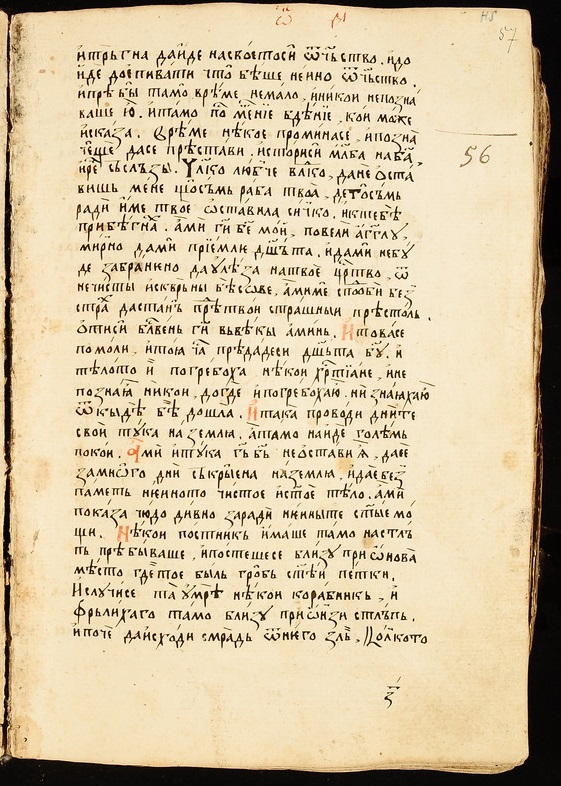 н҃ѕ
57
56
и трьгна да иде на своето си ѿчьство. и до
иде до епивати что бѣше неино ѿчьство.
и прѣбы тамо врѣме немало, и никои непозна
ваше ю. и тамо по мнѣнїе бденїе, кои може
исказа. врѣме нѣкое проминасе, и позна
че ще дасе прѣстави, и стори си млба на ба,
рѣ сьслъзы. Члко любче влко, да не оста
вишь мене що съмь раба твоа, дето съмь
ради име твое ѡставила сичко, и к тебѣ
прибѣгна. ами ги бе мои, повели агглу,
мирно да ми прїемлю дшьта. и да ми небу
де забранено да улѣза на твое црство, ѿ
нечисты и скврьны бѣсове, ами ме сподоби без
стра да стань прѣ твои страшныи прѣстоль.
ѿ тиси блвень ги вьвѣкы аминь. И това се
помоли, и тои ча прѣдаде си дшьта бу. и
тѣлото и погребоха нѣкои хртїане, и не
познаѧ никои, догде и погребохаю, ни знаѧхаю
ѿ кыдѣ бѣ дошла. И така проводи дните
свои тука на землю, а тамо наиде голѣмь
покои. Ами и тука гь бь не остави я, да се
за много дни ськрыена на землю, и да е без
паметь неиното чистое и стое тѣло. ами
показа чюдо дивно заради неиныте стые мо
щи. Нѣкои постникь имаше тамо на стль
пь прѣбываше, и постеше се близу при ѡнова
мѣсто где тое быль гробь стѣи петки.
И случи се та умрѣ нѣкои корабникь, и
фрьлиха го тамо близу при ѡнзи стльпь.
и поче да исходи смрадь ѿ него злѣ. Колкото
з